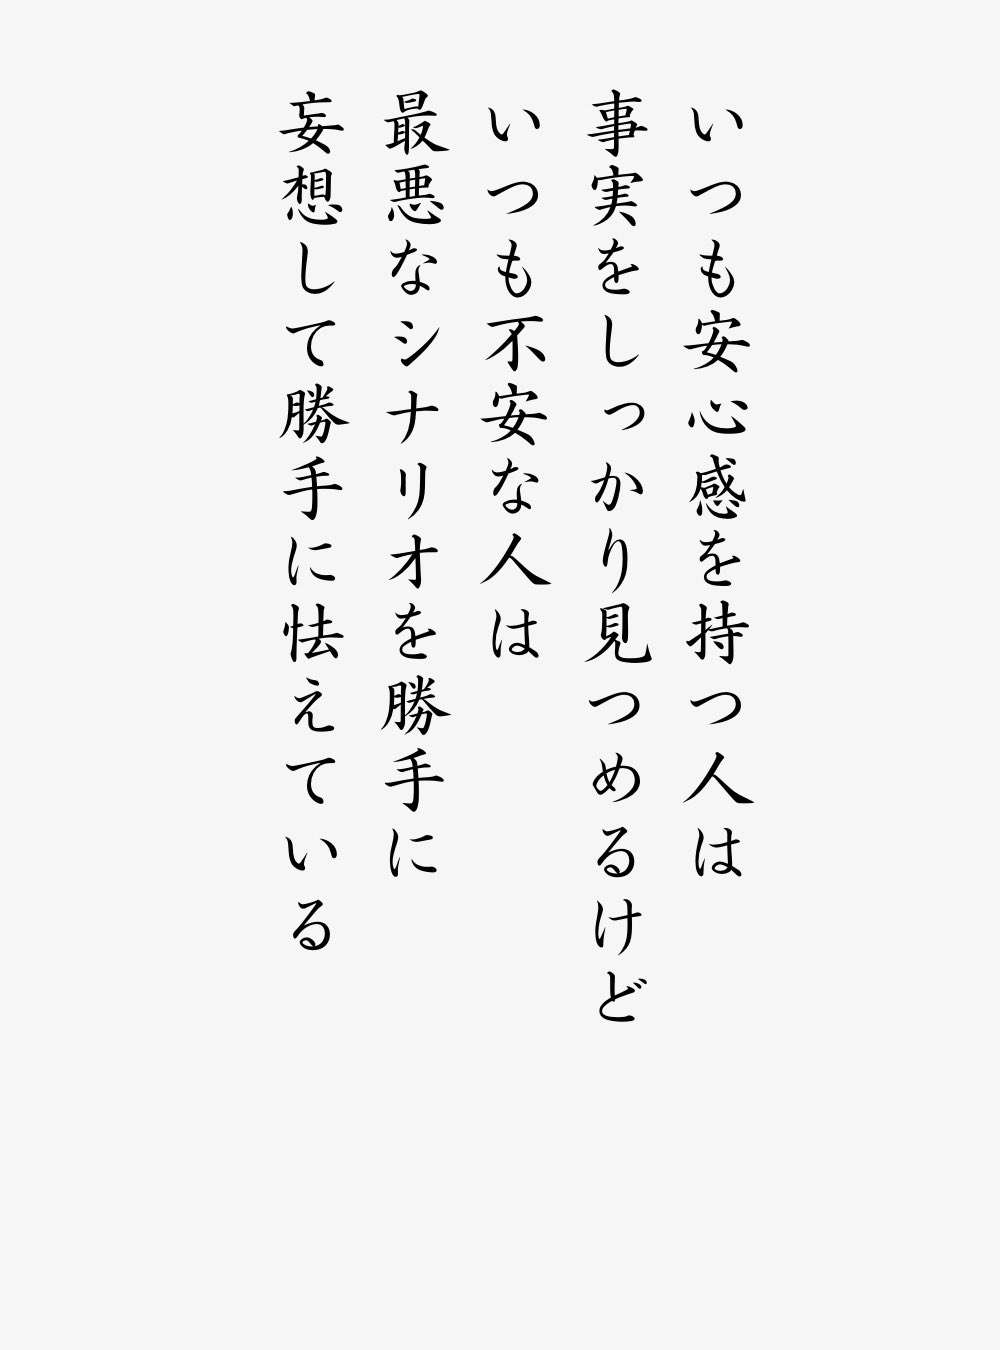 いつも安心感を持つ人は
事実をしっかり見つめるけど
いつも不安な人は
最悪なシナリオを勝手に
妄想して勝手に怯えている